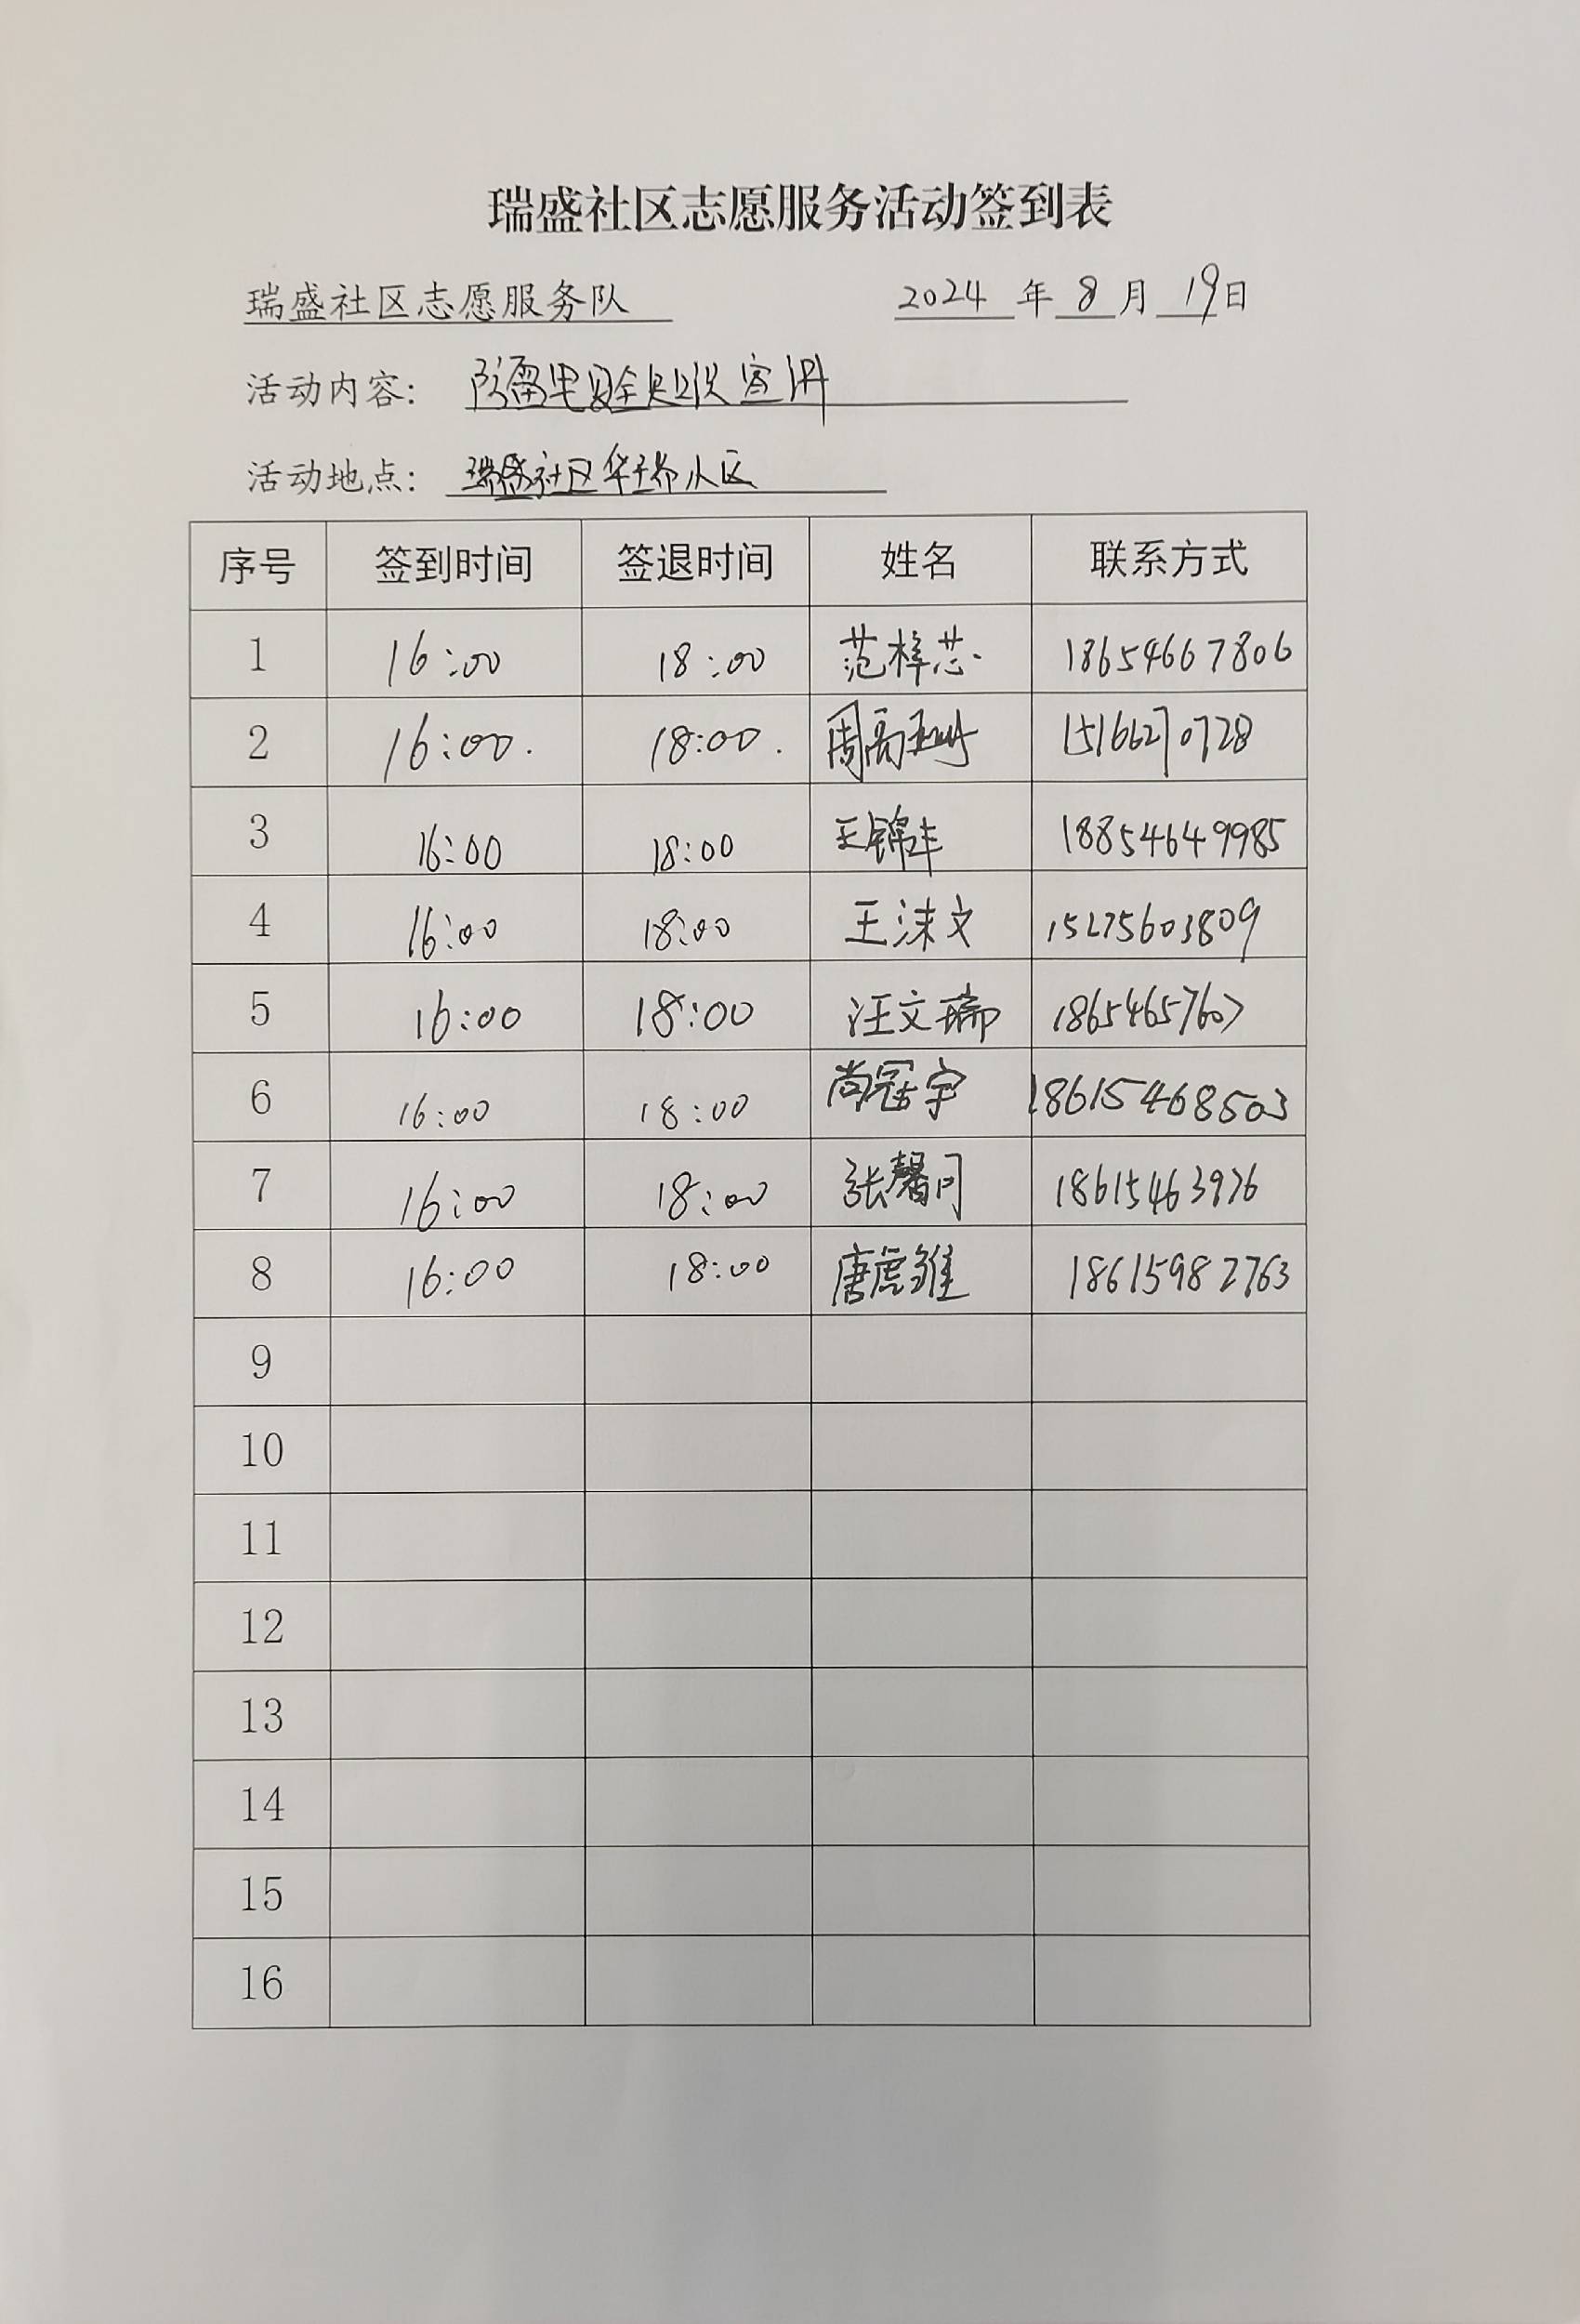 瑞盛社区志愿服务活动签到表
瑞盛社区志愿服务队 2024 年 8 月 19日
活动内容: 防雷电安全知识宣讲
活动地点: 瑞盛社区华瑞小区
序号 签到时间 签退时间 姓名 联系方式
1 16:00 18:00 范梓芯 18654667806
2 16:00. 18:00. 周高 15166270728
3 16:00 18:00 王锦丰 18854649985
4 16:00 18:00 王沫文 15275603809
5 16:00 18:00 汪文瑞 18654657607
6 16:00 18:00 尚冠宇 18615468503
7 16:00 18:00 张馨月 18615463976
8 16:00 18:00 唐虎雏 18615982763
9
10
11
12
13
14
15
16